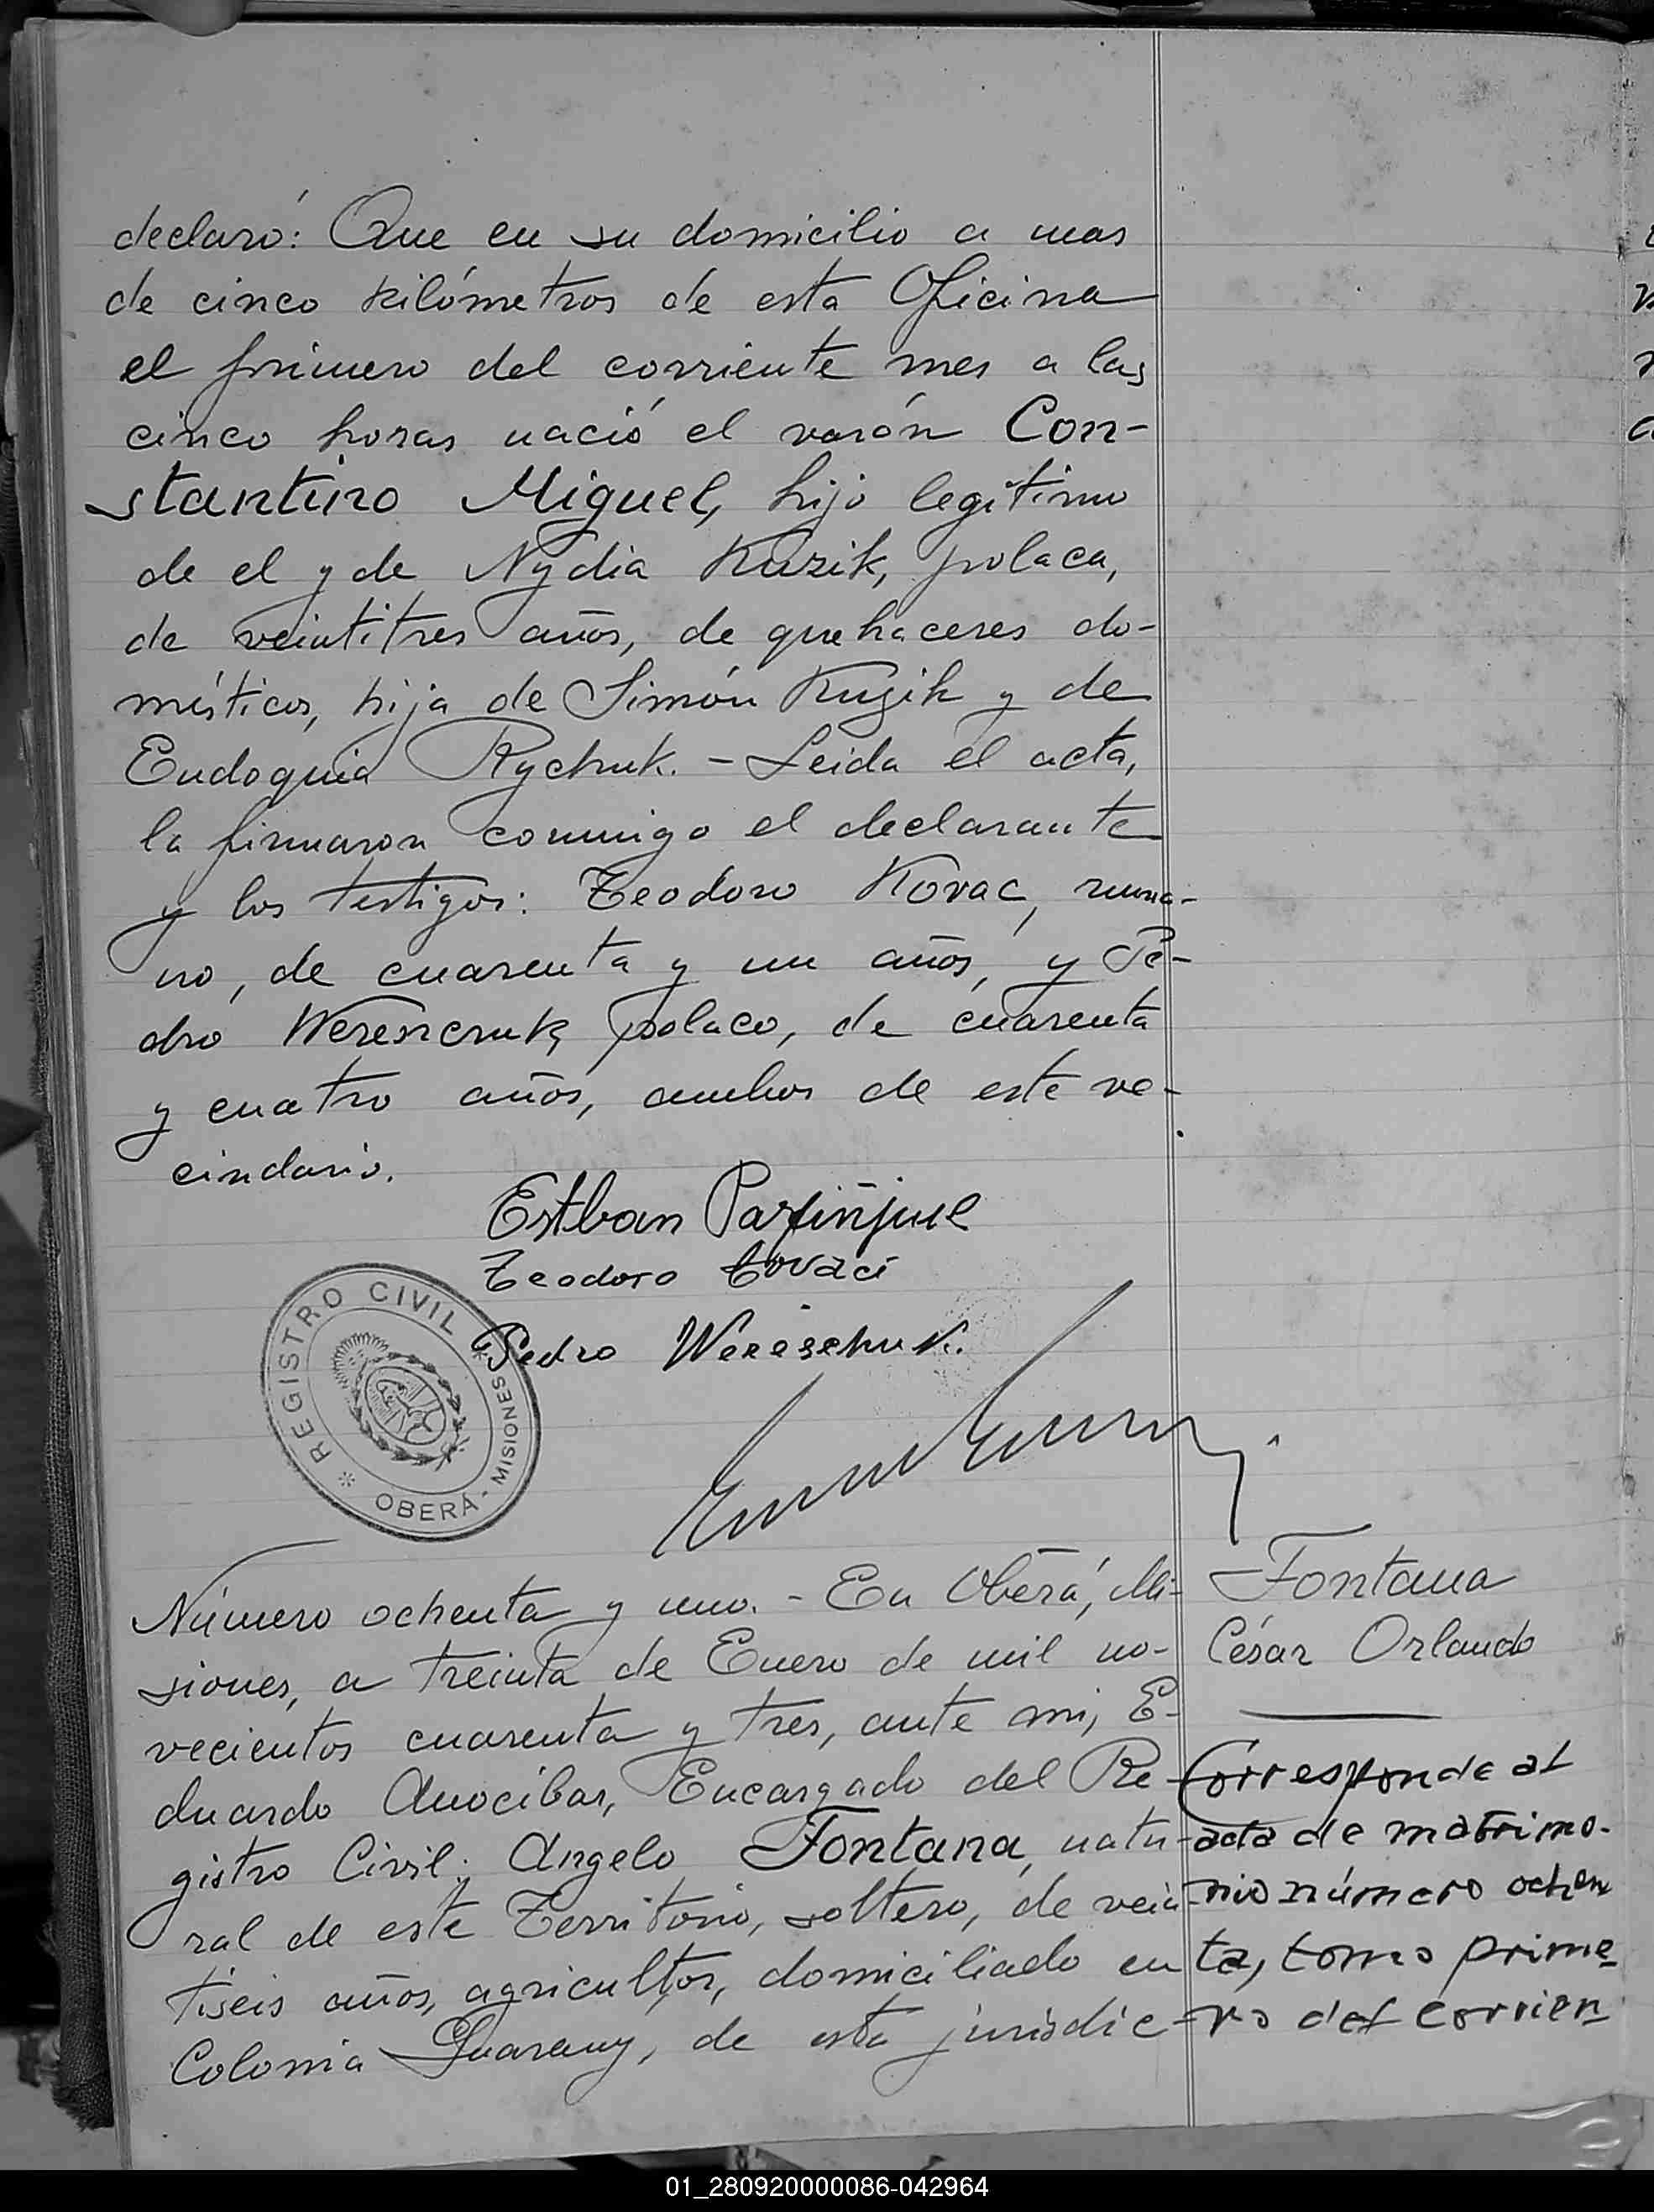 declaró: Que en su domicilio a mas
de cinco kilómetros de esta Oficina
el primero del corriente mes a las
cinco horas nació el varón Con-
stantino Miguel, hijo legitimo
de el y de Nydia Kuzik, polaca,
de veintitres años, de quehaceres do-
mésticos, hija de Simón Kuzik y de
Eudoquia Rychuk. - Leida el acta,
la firmaron conmigo el declarante
y los testigos: Teodoro Kovac, ruma-
no, de cuarenta y un años, y Pe-
dro Werenczuk, polaco, de cuarenta
y cuatro años, ambos de este ve-
cindario.
Estban
Teodoro Covaci
Pedro Wereschuk.
REGISTRO CIVIL
OBERÁ - MISIONES
Número ochenta y uno. - En Oberá, Mi-
siones, a treinta de Enero de mil no-
vecientos cuarenta y tres, ante mi, E-
duardo Anocibar, Encargado del Re-
gistro Civil; Angelo Fontana, natu-
ral de este Territorio, soltero, de vein-
tiseis años, agricultor, domiciliado en
Colonia Guarany, de esta jurisdic-
Fontana
César Orlando
Corresponde al
acta de matrimo-
nio número ochen
ta, tomo prime
ro del corrien
01_280920000086-042964